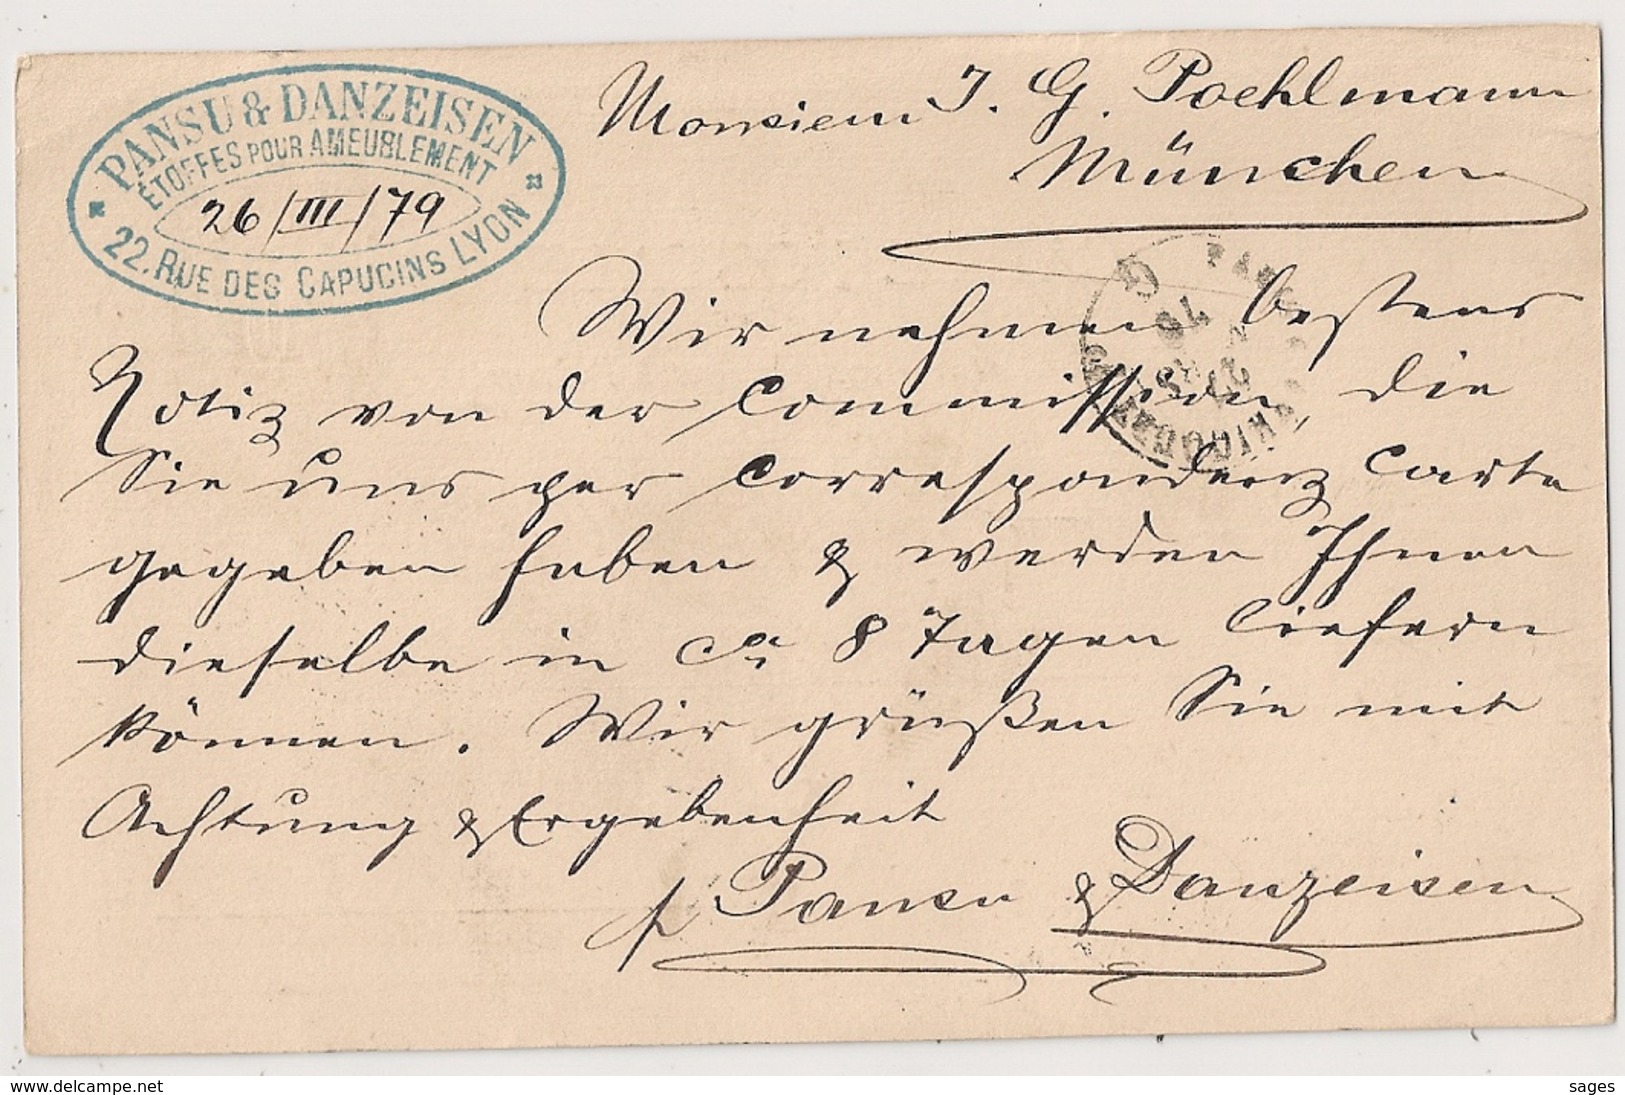 PANSU & DANZEISEN
ÉTOFFES POUR AMEUBLEMENT
26/III/79
22. RUE DES CAPUCINS LYON
Monsieur J. G. Poehlmann
München
Wir nehmen bestens
Notiz von der Commission, die
Sie uns per Correspondenz Carte
gegeben haben & werden Ihnen
dieselbe in ca 8 Tagen liefern
können. Wir grüßen Sie mit
Achtung & Ergebenheit
p Pansu & Danzeisen
www.delcampe.net
sages